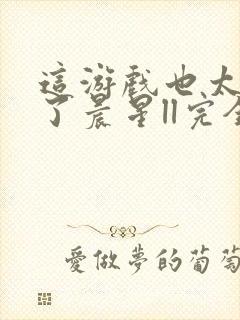 這游戲也太
了晨星II完全
愛做夢的葡萄